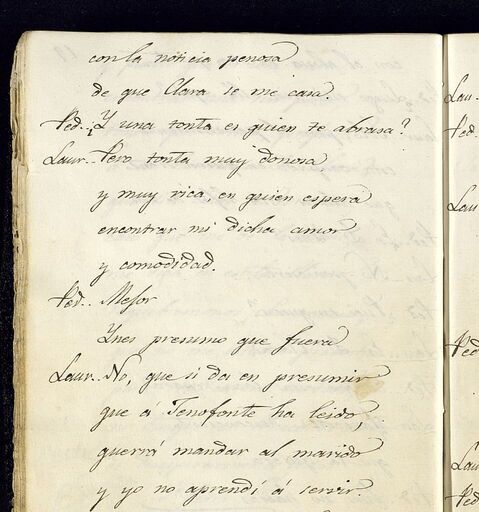 con la noticia penosa
de que Clara se me casa.
Ped.. ¿Y una tonta es quien te abrasa?
Laur.. Pero tonta muy donosa
y muy rica, en quien espera
encontrar mi dicha amor
y comodidad.
Ped.. Mejor
Ynes presumo que fuera
Laur.. No, que si da en presumir
que á Tenofonte ha leido,
querrá mandar al marido
y yo no aprendí á servir.
Lau.
Ped.
Lau
Ped
Lau
Ped